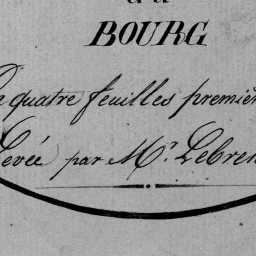 du
BOURG
quatre feuilles premiè
Levée par Mr. Lebre